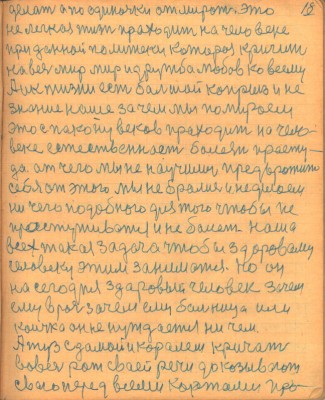 делает а по одиночки от мират. Это 18
не легкая тип праходит на человеке
при данной политеки которая кричит
на век мир мир и дружба любов ко всему
А к жизни есть балшой каприз и не
знание наше зачем мы помираем
это спакой у веков праходит на чело-
веке сстественнаст болезн просту-
да. от чего мы не научили предвратит
себя от этого мы не бралис и не делаем
ни чего подобного для того чтобы не
простуживатся и не болет. Наша
всех такая задача чтобы здоровому
человеку этим заниматся. Но он
на сегодня здаровый человек зачем
ему врач зачем ему балница или
койчка он не нуждается ни чем.
А туз с дамой и каралем кричат
во вес рот сваей речи доказывают
сваю перед всеми картами про-